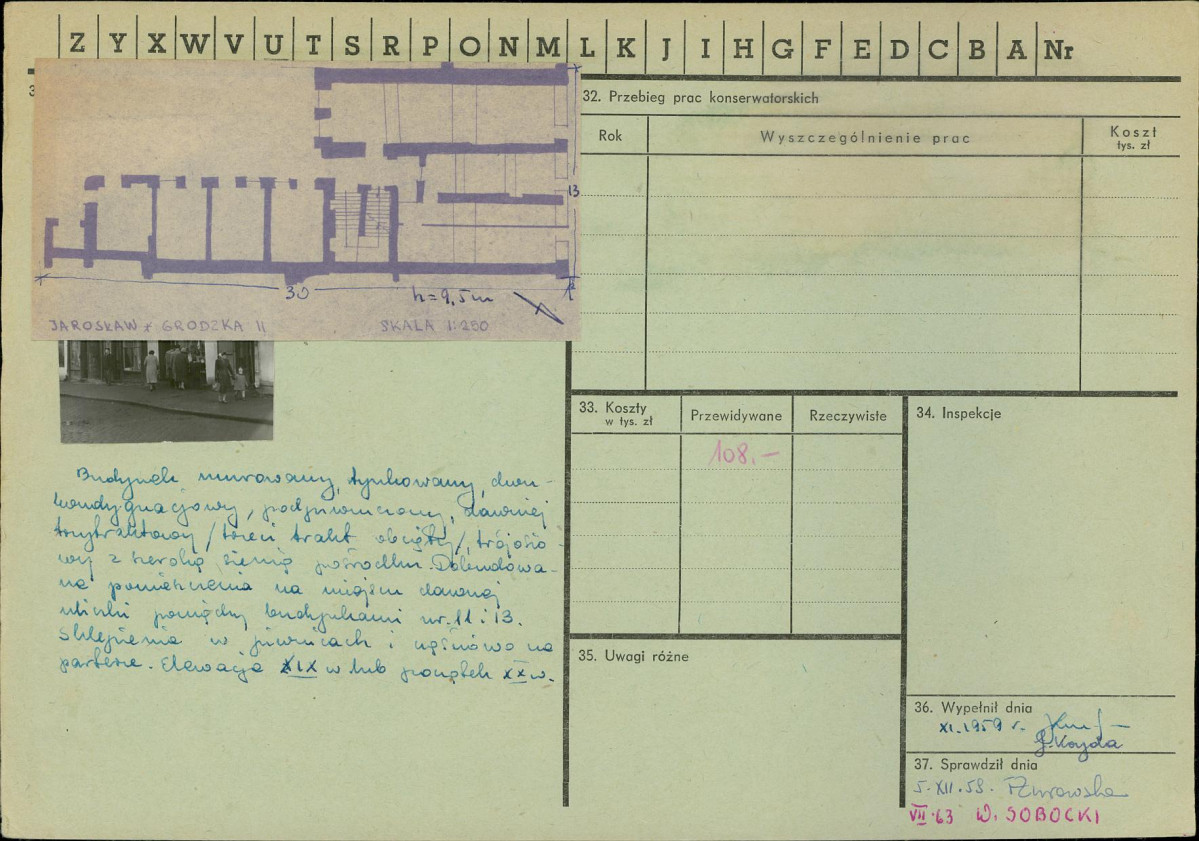 Z Y X W V U T S R P O N M L K J I H G F E D C B A Nr
3
13
30
h=9,5m
JAROSŁAW GRODZKA 11
SKALA 1:200
Budynek murowany, tynkowany, dwu-
kondygnacjowy, podpiwniczony, dawniej
trzytraktowy /trzeci trakt obcięty/, trójosio-
wy z szeroką sienią pośrodku. Dobudowa-
ne pomieszczenia na miejscu dawnej
uliczki pomiędzy budynkami nr. 11 i 13.
Sklepienia w piwnicach i częściowo na
parterze. Elewacja XIX w lub początek XX w.
32. Przebieg prac konserwatorskich
Rok
Wyszczególnienie prac
Koszt
tys. zł
33. Koszty
w tys. zł
Przewidywane
Rzeczywiste
108.-
34. Inspekcje
35. Uwagi różne
36. Wypełnił dnia
XI.1959 r.
37. Sprawdził dnia
5.XII.59.
VII.63 W. SOBOCKI